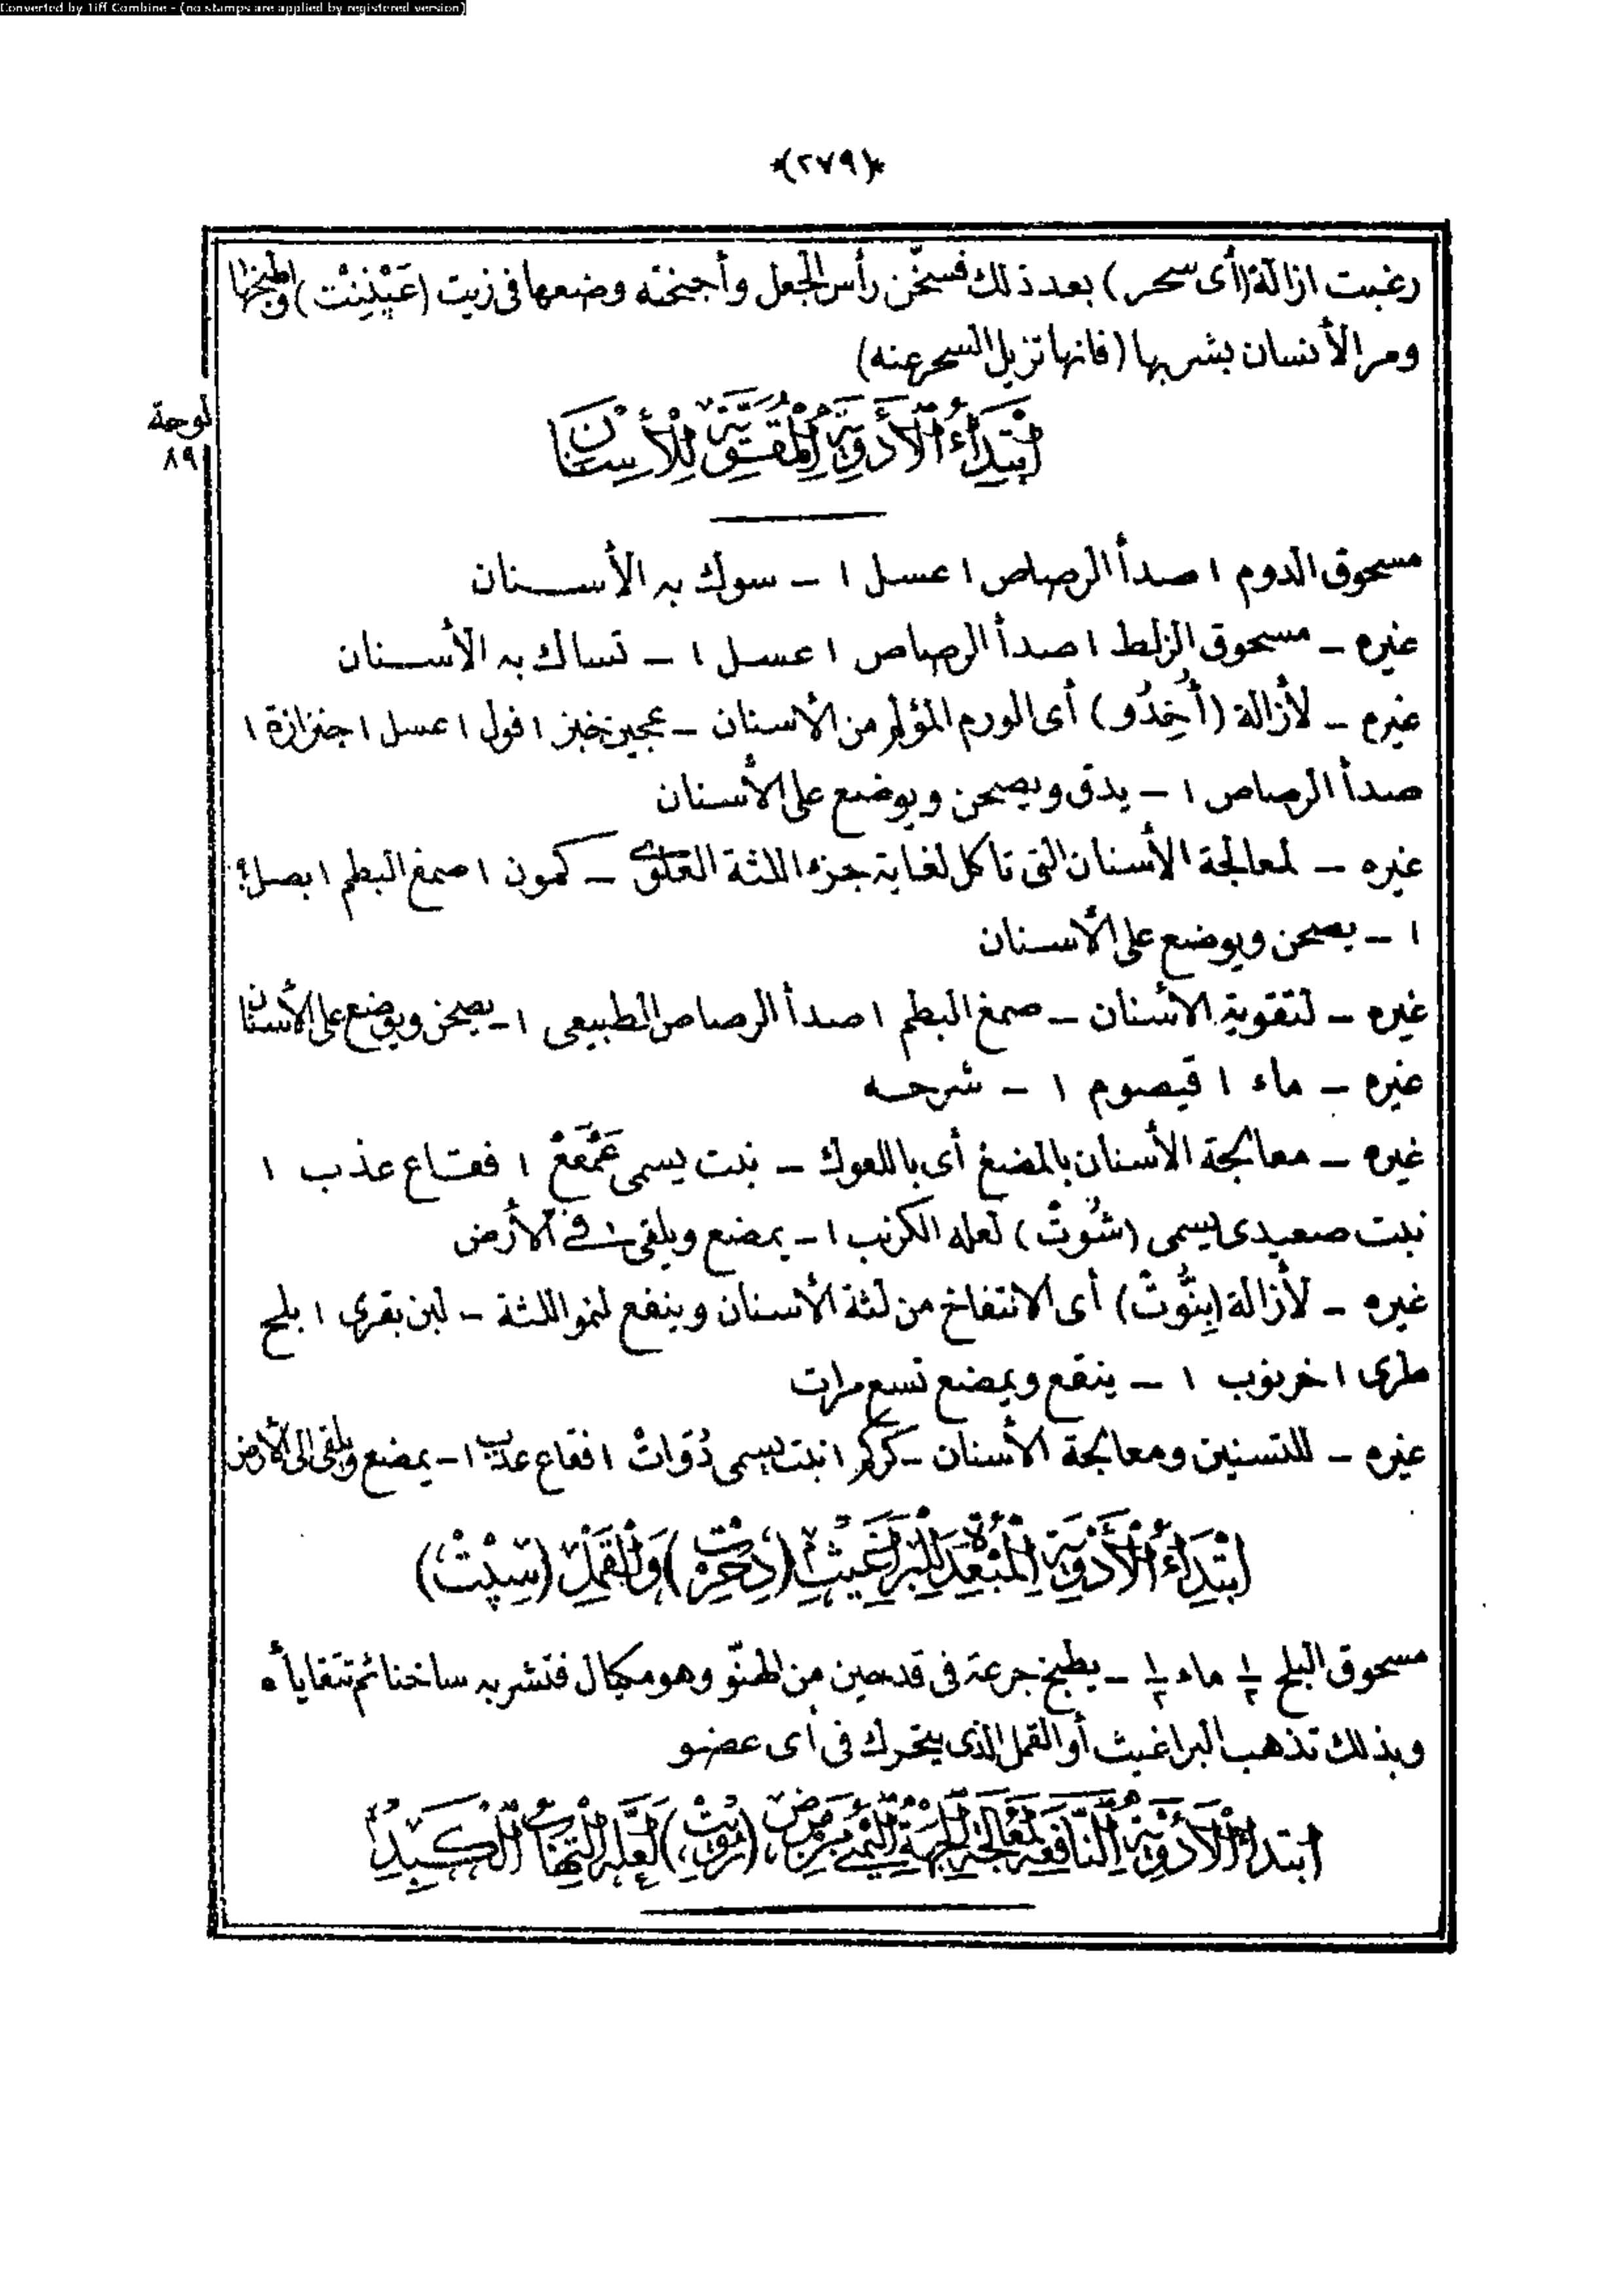 Converted by Tiff Combine - (no stamps are applied by registered version)
*(٢٧٩)*
رغبت ازالة (أى سحر) بعد ذلك فسخّن رأس الجعل وأجنحته وضعها فى زيت (عَبْنِنْت) واطبخها
ومر الأنسان بشربها (فانها تزيل السحر عنه)
لوحة
٨٩
اِبْتِدَاءُ الْأَدْوِيَةِ الْمُقَوِّيَةِ لِلْأَسْنَانِ
مسحوق الدوم ١ صدأ الرصاص ١ عسل ١ – سوك به الأســنان
غيره – مسحوق الزلط ١ صدأ الرصاص ١ عسل ١ – تساك به الأســنان
غيره – لأزالة (أُخِدُو) أى الورم المؤلم من الأسنان – عجين خبز ١ فول ١ عسل ١ جنزارة ١
صدأ الرصاص ١ – يدق ويصحن ويوضع على الأسنان
غيره – لمعالجة الأسنان التى تاكل لغاية جزء اللثة العلوى – كمون ١ صمغ البطم ١ بصل؟
١ – يصحن ويوضع على الأسنان
غيره – لتقوية الأسنان – صمغ البطم ١ صدأ الرصاص الطبيعى ١ – يصحن ويوضع على الأسنان
غيره – ماء ١ قيصوم ١ – شرحه
غيره – معالجة الأسنان بالمضغ أى باللعوك – نبت يسمى عَمْعَعْ ١ فقاع عذب ١
نبت صعيدى يسمى (شُوتْ) لعله الكرنب ١ – يمضغ ويلقى فى الأرض
غيره – لأزالة (بِنُّوتْ) أى الانتفاخ من لثة الأسنان وينفع لنمو اللثة – لبن بقرى ١ بلح
طرى ١ خرنوب ١ – ينقع ويمضغ تسع مرات
غيره – للتسنين ومعالجة الأسنان – كركر ١ نبت يسمى دُوَاتْ ١ فقاع عذب ١ – يمضغ ويلقى الى الأرض
اِبْتِدَاءُ الْأَدْوِيَةِ الْمُبْعِدَةِ لِلْبَرَاغِيثِ (دِحِرْت) وَالْقَمْلِ (سِپْتْ)
مسحوق البلح ١/٢ ماء ١/٢ – يطبخ جرعة فى قدحين من الهنّو وهو مكيال فتشربه ساخنا ثم تتقايأه
وبذلك تذهب البراغيث أو القمل الذى يتحرك فى أى عضو
ابتداء الْأَدْوِيَةِ النَّافِعَةِ لِمُعَالَجَةِ الْجِهَةِ الْيُمْنَى مِنْ مَرَضِ (مُرُوتْ) لَعَلَّهُ الْتِهَابُ الْكَبِدِ